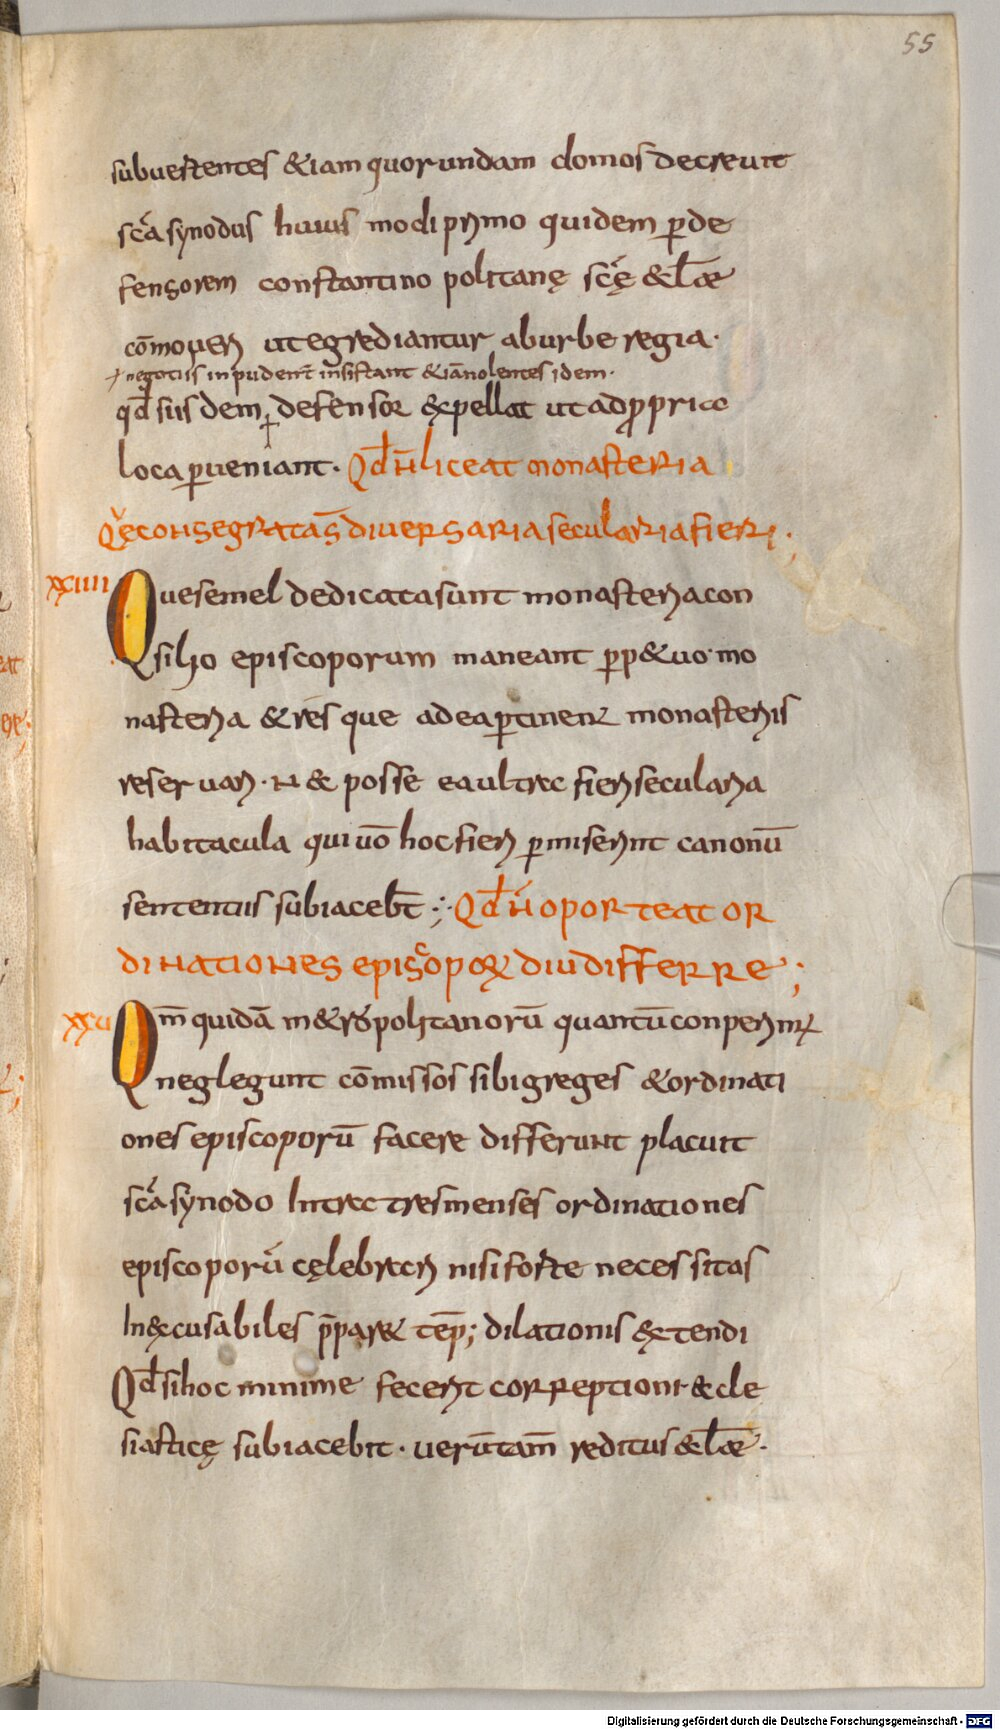 55
subuertentes &iam quorundam domos decreuit
sc̄a synodus huius modi primo quidem p̄ de
fensorem constantino politanę sc̄ę &cl̄ae
cōmoueri ut egrediantur ab urbe regia·
negotiis inpudent̄ insistant &iā nolentes idem·
qd̄ siis dem defensor expellat ut ad propria
loca p̄ueniant· Qd̄ n̄ liceat monasteria
Quę consegrata s̄ diuersaria secularia fieri;
XXIIII Que semel dedicata sunt monasteria con
silio episcoporum maneant p̄p&uo mo
nasteria & res que ad ea p̄tinent monasteriis
reseruari· N & posse ea ultra fieri secularia
habitacula qui uō hoc fieri p̄miserint canonū
sententiis subiaceb̄t; Qd̄ n̄ oporteat or
dinationes episcopoꝝ diu differre;
XXU Qm̄ quidā m&ropolitanorū quantū conperimꝰ
neglegunt cōmissos sibi greges & ordinati
ones episcoporū facere differunt placuit
sc̄a synodo Intra tres menses ordinationes
episcoporū cęlebrari nisi forte necessitas
Inexcusabiles p̄par& tēp; dilationis extendi
Qd̄ si hoc minime fecerit correptioni &cle
siasticę subiacebit· uerūtam̄ reditus &cl̄ae·
Digitalisierung gefördert durch die Deutsche Forschungsgemeinschaft - DFG